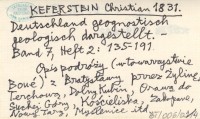 KEFERSTEIN Christian 1831.
Deutschland geognostisch
geologisch dargestellt.
Band 7, Heft 2: 135-191.
Opis podróży (w towarzystwie
Boué) z Bratysławy przez Żylinę,
Terchową, Dolny Kubin, Orawą do
Suchej Góry, Kościeliska, Zakopane,
Nowy Targ, Myślenice itd